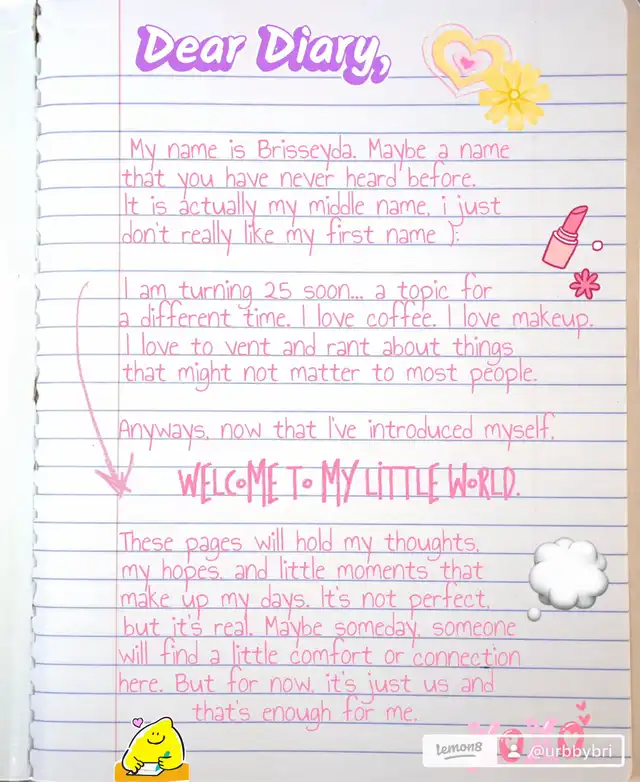 Dear Diary,
My name is Brisseyda. Maybe a name
that you have never heard before.
It is actually my middle name, i just
don't really like my first name ):
I am turning 25 soon... a topic for
a different time. I love coffee. I love makeup.
I love to vent and rant about things
that might not matter to most people.
Anyways, now that I've introduced myself,
WELCOME TO MY LITTLE WORLD.
These pages will hold my thoughts,
my hopes, and little moments that
make up my days. It's not perfect,
but it's real. Maybe someday, someone
will find a little comfort or connection
here. But for now, it's just us and
that's enough for me.
Lemon8 @urbbybri